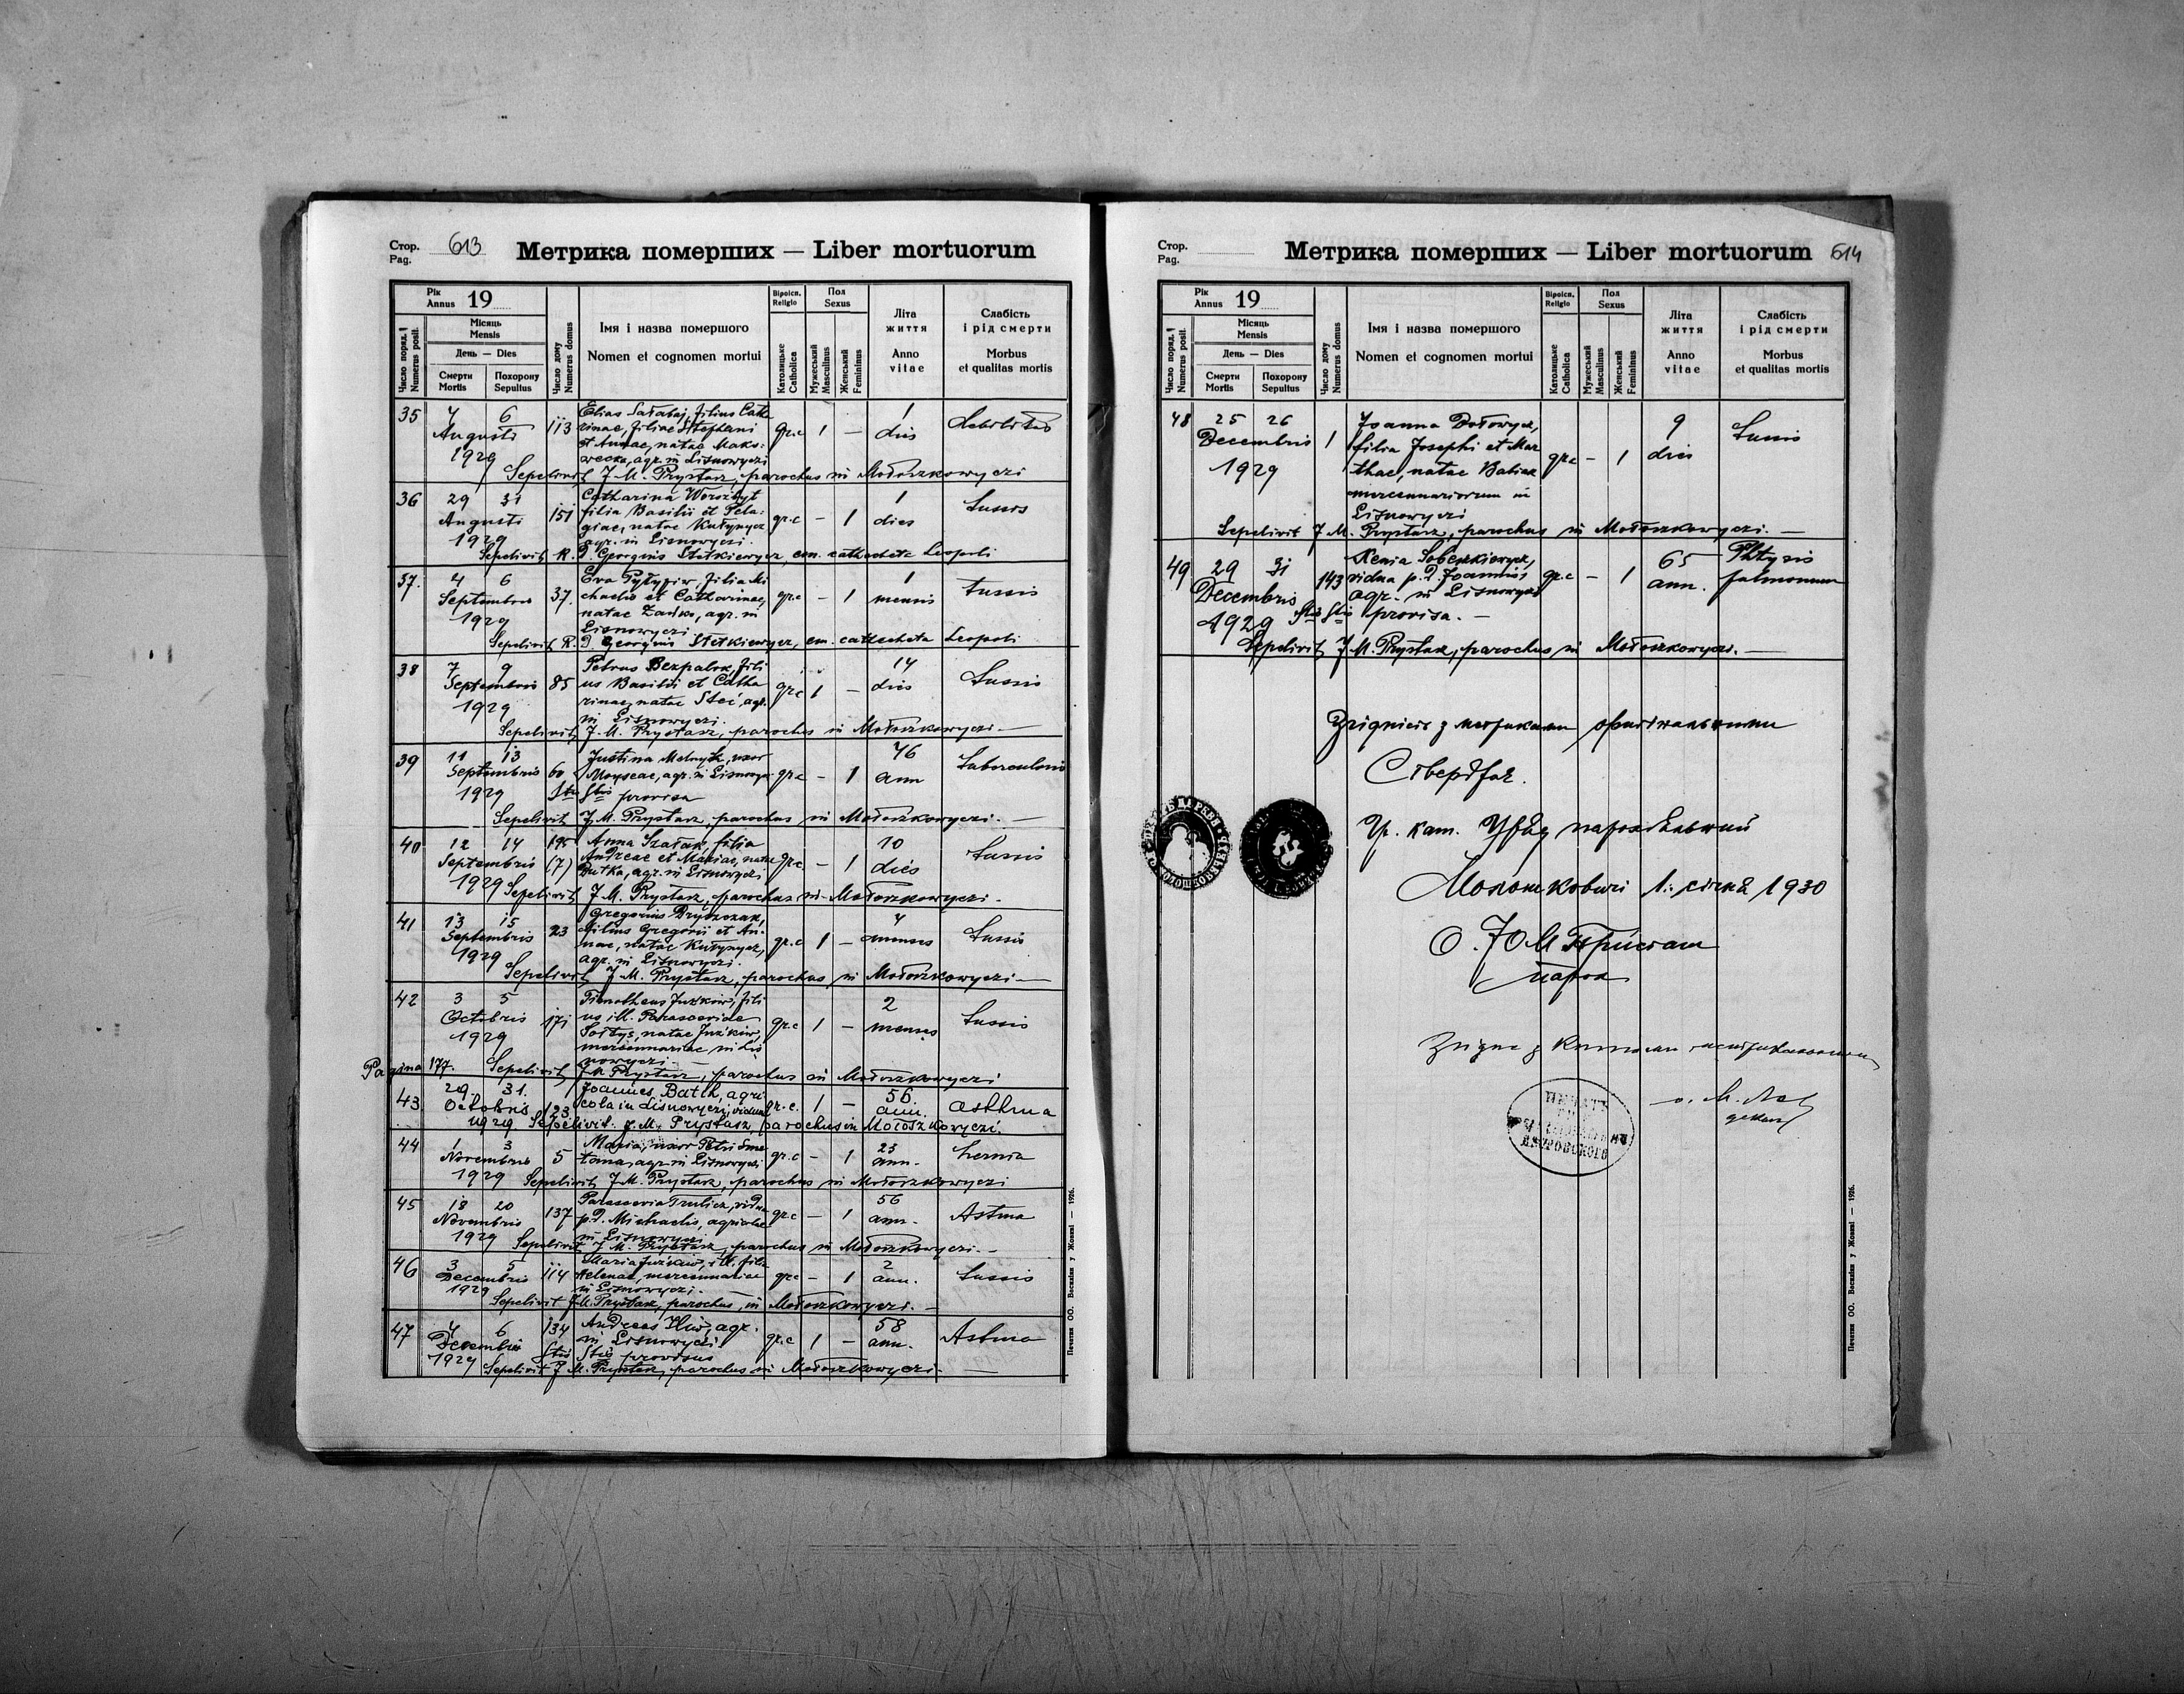 Стор. 613 Метрика померших — Liber mortuorum
Pag.
Рік 19
Annus
Число поряд. Numerus posit.
Місяць
Mensis
День — Dies
Смерти Похорону
Mortis Sepultus
Число дому Numerus domus
Імя і назва померш­ого
Nomen et cognomen mortui
Віроісп.
Religio
Католицьке Catholica
Пол
Sexus
Мужеський Masculinus
Женський Femininus
Літа
життя
Anno
vitae
Слабість
і рід смерти
Morbus
et qualitas mortis
35 4 6 113 Elias filius Cath
Augusti rinae, filiae Stephani gr.c 1 — 1 dies Debilitas
1929 et Annae, natae Maks:
wecka, agr. in Lisnowyczi
Sepelivit J. M. Prystasz, parochus in Mołoszkowyczi
36 29 31 151 Catharina Worożbyt 1 Tussis
Augusti filia Basilii et Pela: gr.c — 1 dies
1929 giae, natae Kułynycz
agr. in Lisnowyczi.
Sepelivit R. D. Georgius Stetkiewycz, em. catecheta Leopoli
37. 4 6 37. Eva filia Mi 1 tussis
Septembris chaelis et Catharinae, gr.c — 1 mensis
1929 natae agr. in
Lisnowyczi
Sepelivit R. D. Georgius Stetkiewycz, em. catecheta Leopoli
38 7 9 85 Petrus Bezpalok, fili 14 Tussis
Septembris us Basilii et Catha gr.c 1 — dies
1929 rinae, natae Steć, agr.
in Lisnowyczi.
Sepelivit J. M. Prystasz, parochus in Mołoszkowyczi —
39 11 13 60 Justina Melnyk, uxor 76 Tuberculosis
Septembris Moyseae, agr. in Lisnowyczi gr.c — 1 ann
1929 Stis Stis provisa
Sepelivit J. M. Prystasz, parochus in Mołoszkowyczi. —
40 12 14 195 Anna Szałak, filia 10 Tussis
Septembris (7) Andreae et Mariae, natae gr.c — 1 dies
1929 Butka, agr. in Lisnowyczi
Sepelivit J. M. Prystasz, parochus in Mołoszkowyczi.
41 13 15 23 Gregorius Dryszczak, 4 Tussis
Septembris filius Gregorii et An: gr.c 1 — menses
1929 nae, natae Kułynycz,
agr. in Lisnowyczi.
Sepelivit J. M. Prystasz, parochus in Mołoszkowyczi —
42 3 5 171 Timotheus Juźkiw, fili 2 Tussis
Octobris us ill. Parasceviae gr.c 1 — menses
1929 Sołtys, natae Juźkiw,
mercennariae in Lis
nowyczi —
Pagina 177. Sepelivit J. M. Prystasz, parochus in Mołoszkowyczi
43. 29. 31. 123. Joannes Batih, agri 56 asthma
Octobris cola in Lisnowyczi, viduus gr.c. 1 — ann.
1929 Sepelivit J. M. Prystasz, parochus in Mołoszkowyczi.
44 1 3 5 Maria, uxor Petri Sme 23 hernia
Novembris tana, agr. in Lisnowyczi gr.c — 1 ann.
1929 Sepelivit J. M. Prystasz, parochus in Mołoszkowyczi
45 18 20 137 Parascevia vidua 56 Astma
Novembris p.d. Michaelis, agricolae gr.c — 1 ann.
1929 in Lisnowyczi
Sepelivit J. M. Prystasz, parochus in Mołoszkowyczi. —
46 3 5 114 Maria Juźkiw, ill. filia 2 Tussis
Decembris Helenae, mercennariae gr.c — 1 ann.
1929 in Lisnowyczi. —
Sepelivit J. M. Prystasz, parochus, in Mołoszkowyczi. —
47 4 6 134 Andreas Iliw, agr. 58 Astma
Decembris in Lisnowyczi gr.c 1 — ann.
1929 Stis Stis provisus
Sepelivit J. M. Prystasz, parochus in Mołoszkowyczi —
Печатня ОО. Василіян у Жовкві — 1926.
Стор. Метрика померших — Liber mortuorum 614
Pag.
Рік 19
Annus
Число поряд. Numerus posit.
Місяць
Mensis
День — Dies
Смерти Похорону
Mortis Sepultus
Число дому Numerus domus
Імя і назва померш­ого
Nomen et cognomen mortui
Віроісп.
Religio
Католицьке Catholica
Пол
Sexus
Мужеський Masculinus
Женський Femininus
Літа
життя
Anno
vitae
Слабість
і рід смерти
Morbus
et qualitas mortis
48 25 26 1 Joanna Dołowycz, 9 Tussis
Decembris filia Josephi et Mar gr.c — 1 dies
1929 thae, natae Babiak
mercennariorum in
Lisnowyczi
Sepelivit J. M. Prystasz, parochus in Mołoszkowyczi. —
49 29 31 143 Xenia Sobeszkiewycz, 65 Phtysis
Decembris vidua p.d. Joannis gr.c — 1 ann. pulmonum
1929 agr. in Lisnowyczi
Stis Stis provisa. —
Sepelivit J. M. Prystasz, parochus in Mołoszkowyczi. —
Згідність з метриками оригінальними
Стверджає.
Гр. кат. Уряд парохіяльний
Молошковичі 1. січня 1930
О. Ю М Присташ
парох
Згідне з книгами метрикальними
о. М.
декан
ПЕЧАТЬ
ЯВОРОВСКОГО
Печатня ОО. Василіян у Жовкві — 1926.